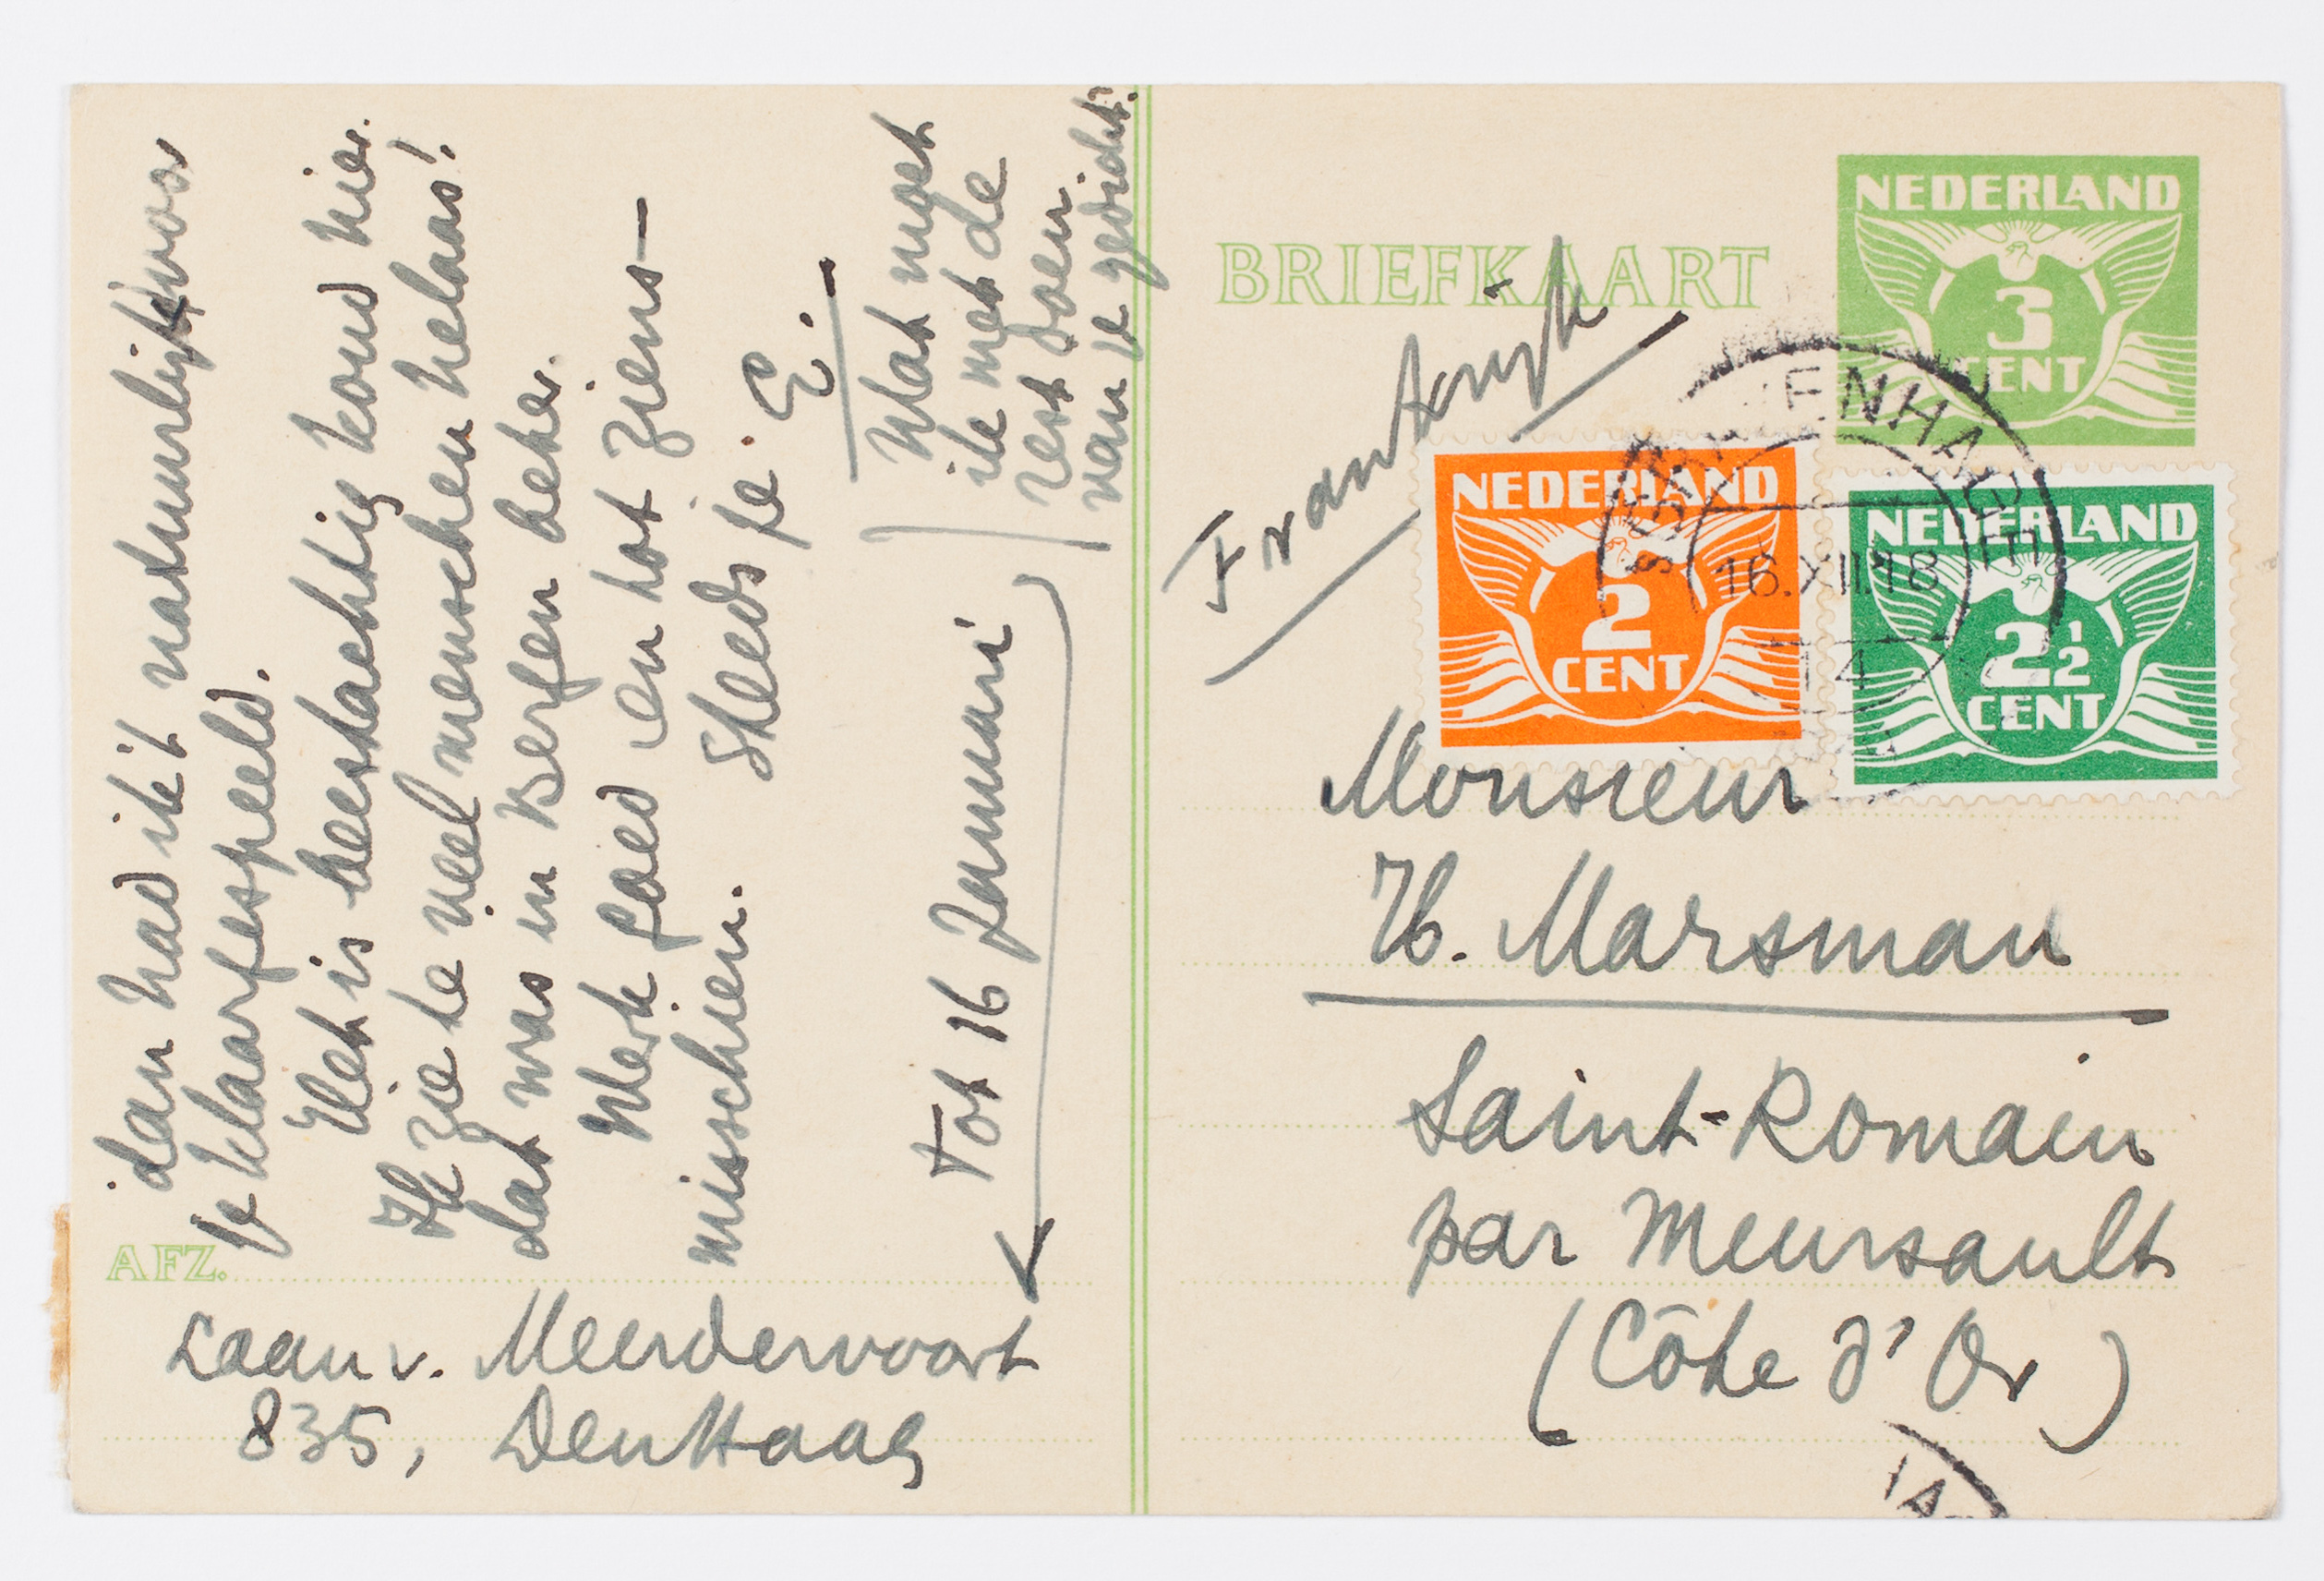 dan had ik 't natuurlijk voor
je klaargespeeld.
Het is beestachtig koud hier.
Ik zie te veel menschen helaas!
dat was in Bergen beter.
Werk goed en tot ziens —
misschien. Steeds je E.
Tot 16 Januari
Wat moet
ik met de
rest doen
van je gedicht?
AFZ.
Laan v. Meerdervoort
835, Den Haag
BRIEFKAART
Frankrijk
NEDERLAND
3
CENT
NEDERLAND
2
CENT
NEDERLAND
2½
CENT
16.XII.18
14
Monsieur
H. Marsman
Saint-Romain
par Meursault
(Côte d'Or)